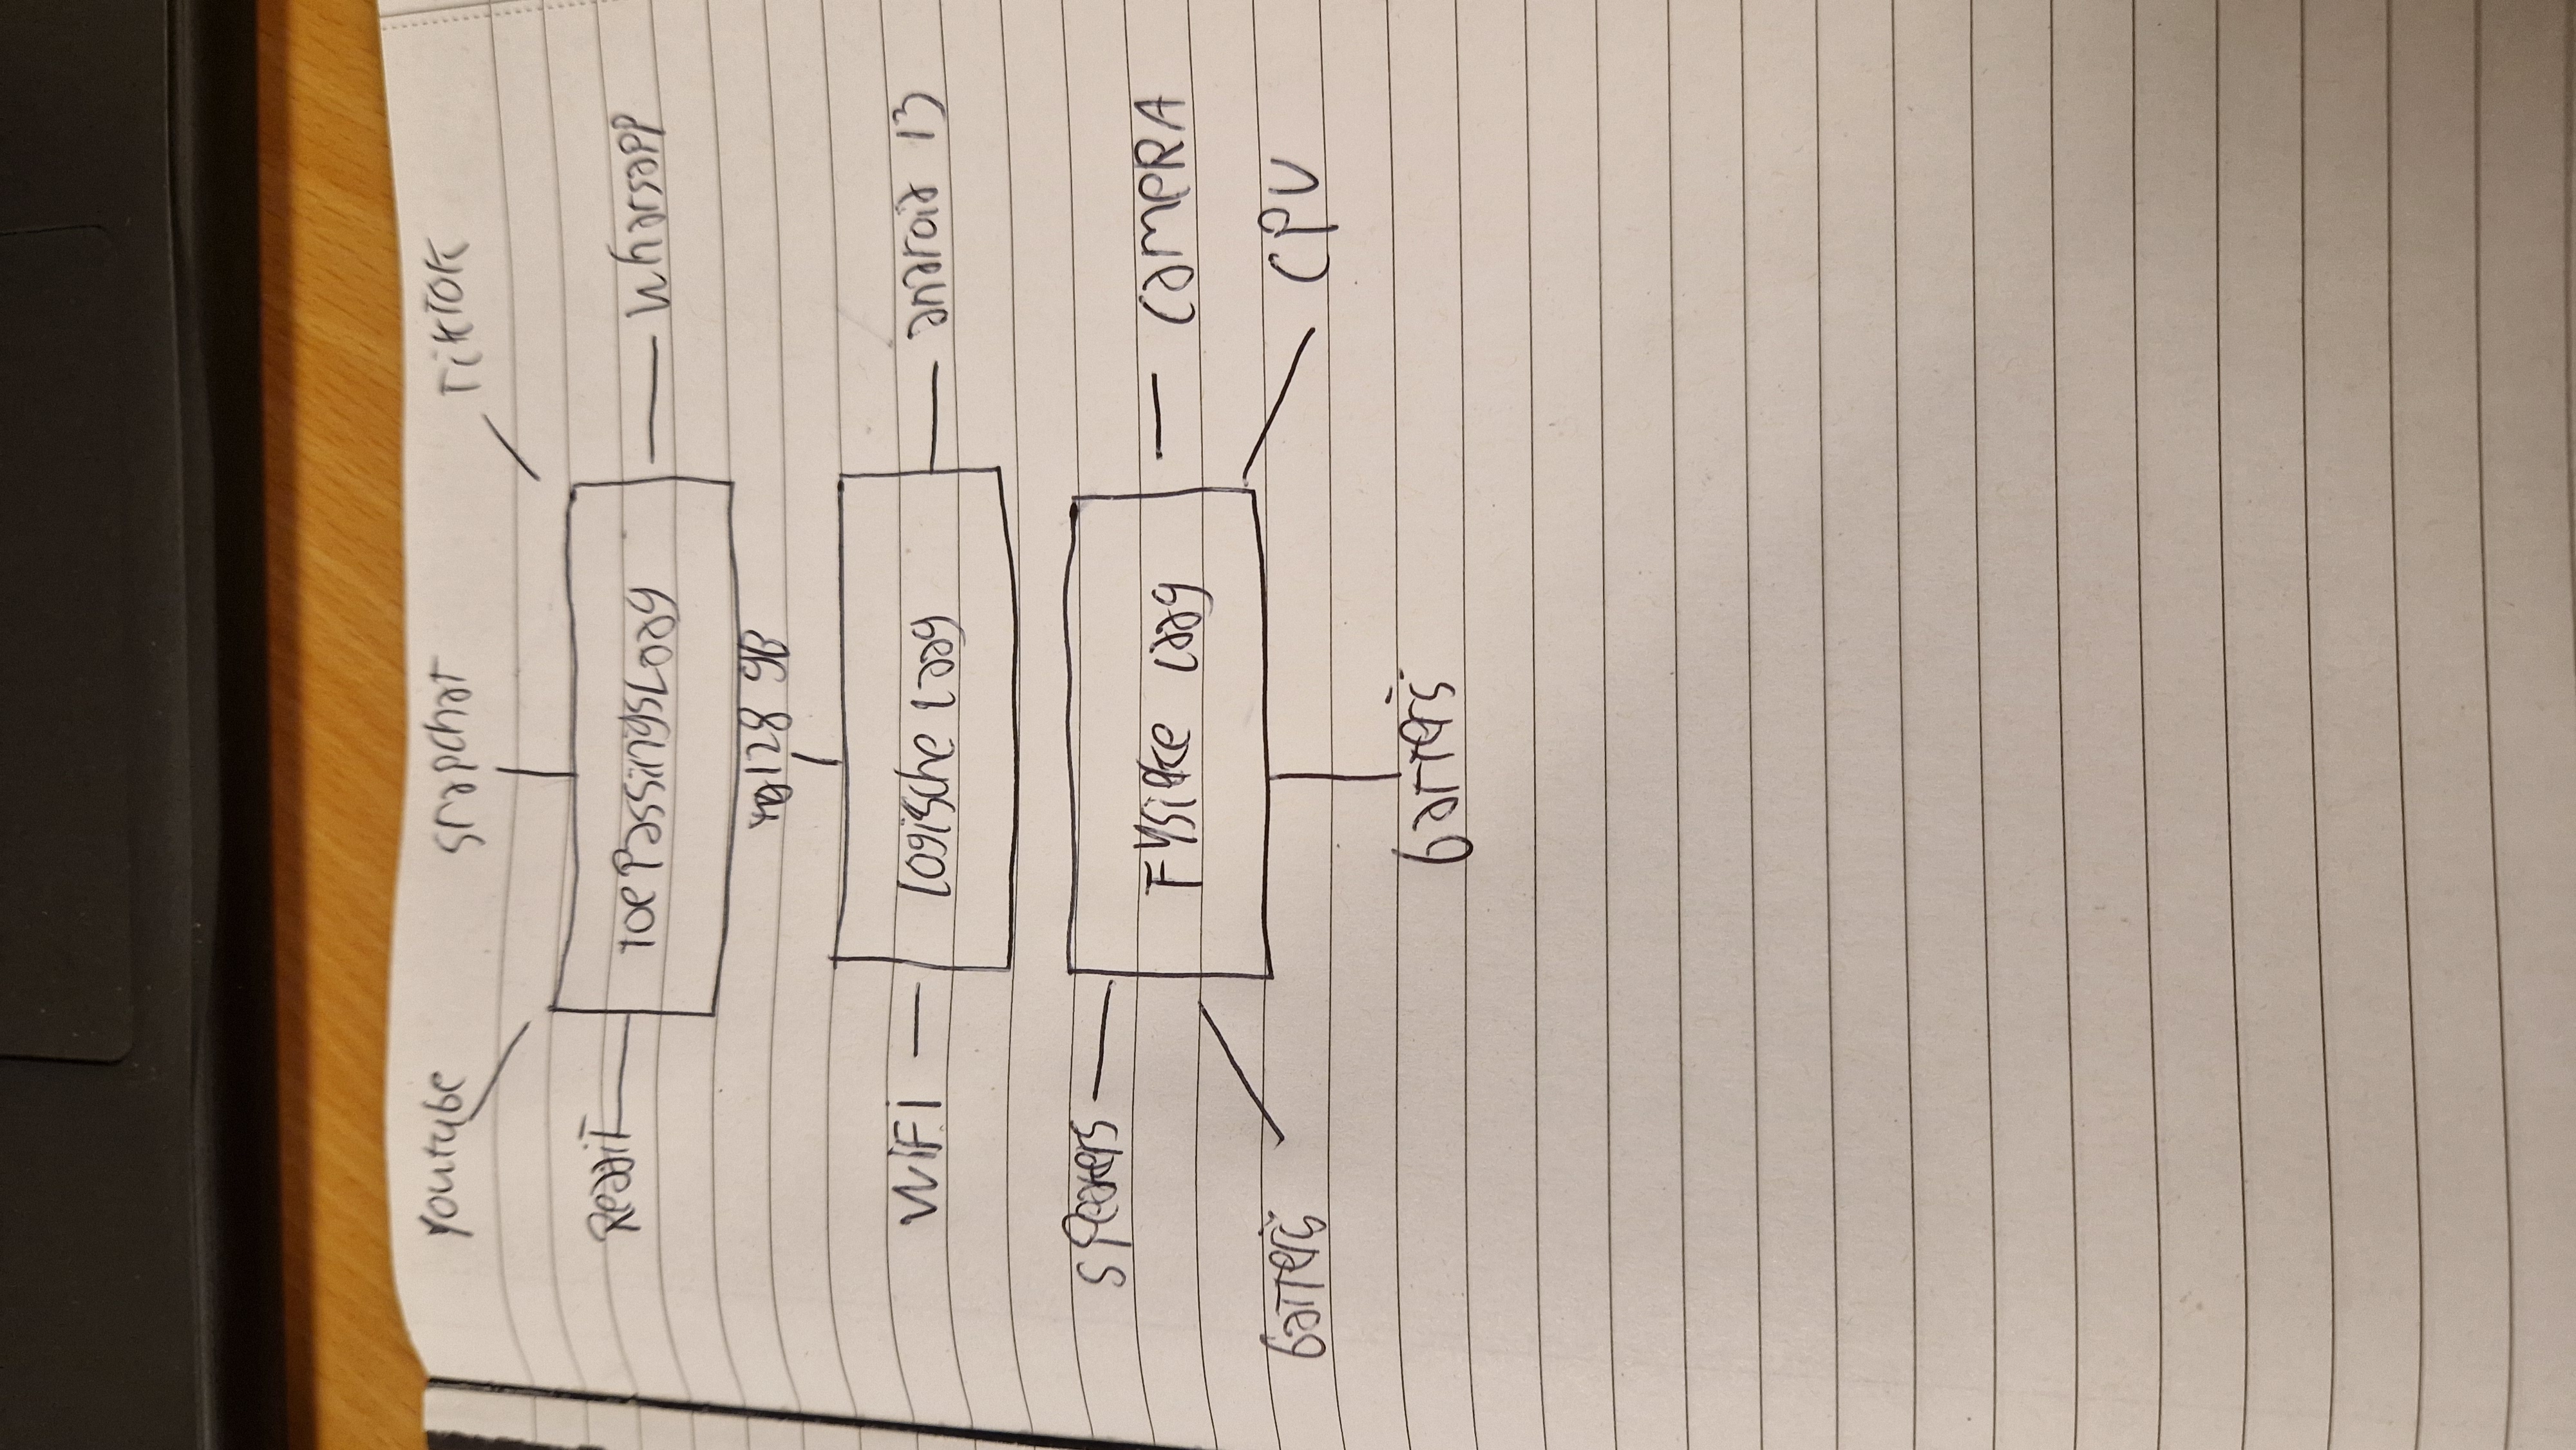 Youtube Snapchat TikTOK
Reddit toePassingsLaag Whatsapp
128 gB
WiFi Logische Laag android 13
Speakers
Fysieke Laag CAMERA
batterij CPU
batterij